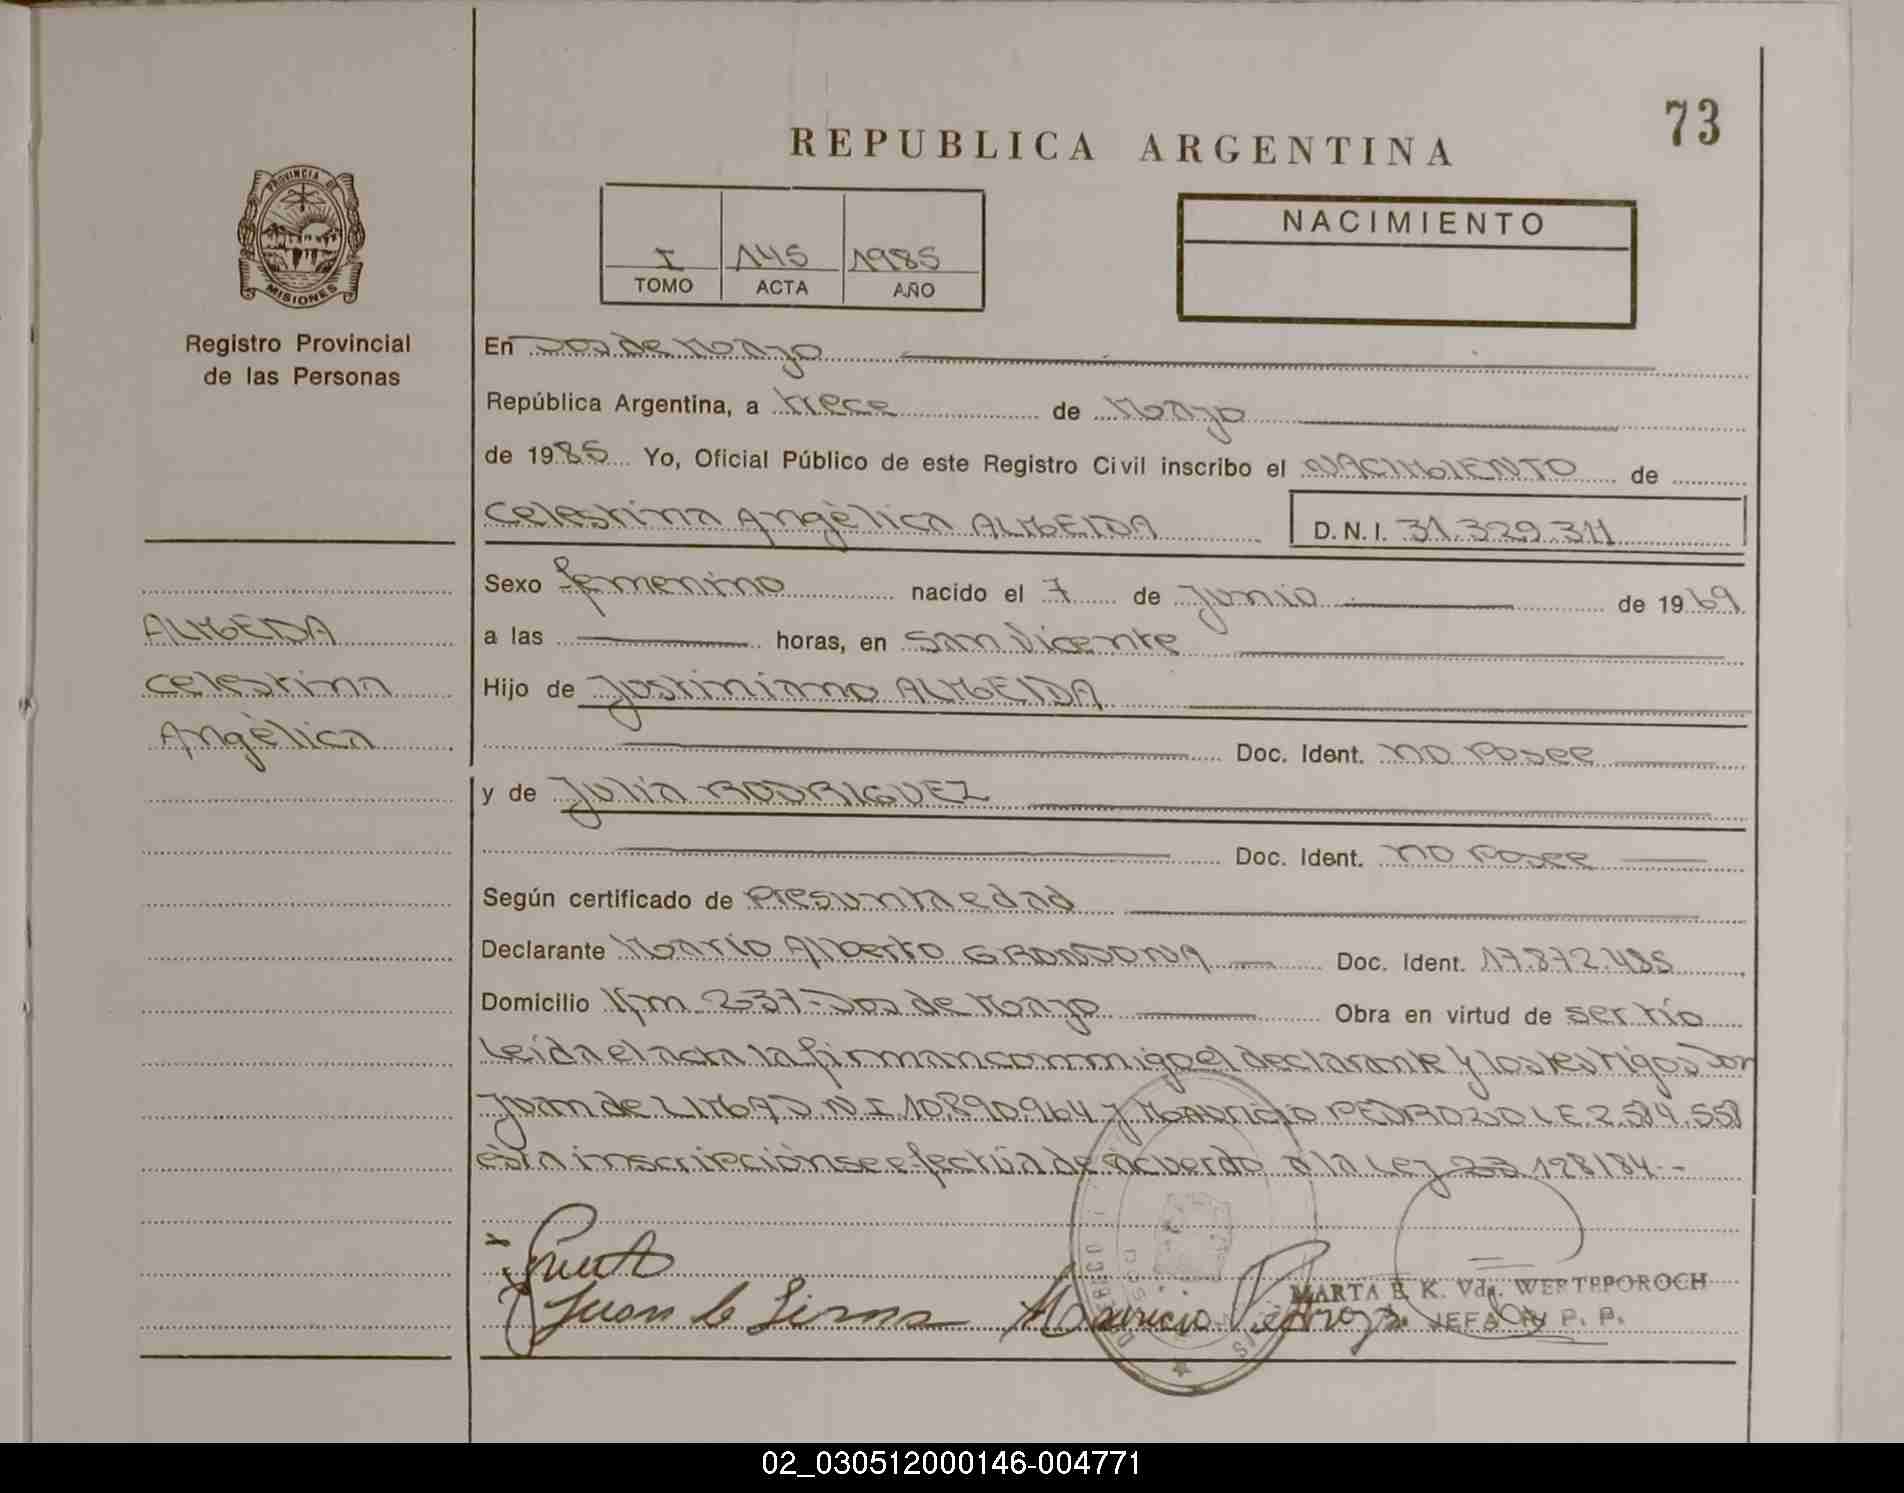 73
REPUBLICA ARGENTINA
PROVINCIA DE
MISIONES
Registro Provincial
de las Personas
I 145 1985
TOMO ACTA AÑO
NACIMIENTO
En Dos de Mayo
República Argentina, a trece de Mayo
de 1985 Yo, Oficial Público de este Registro Civil inscribo el NACIMIENTO de
Celestina Angèlica ALMEIDA D.N.I. 31.329.311
Sexo femenino nacido el 7 de Junio de 1969
a las horas, en San Vicente
Hijo de Justiniano ALMEIDA
Doc. Ident. no Posee
y de Julia RODRIGUEZ
Doc. Ident. no Posee
Según certificado de Presunta edad
Declarante Mario Alberto GRONDONA Doc. Ident. 17.872.485
Domicilio Km 237-Dos de Mayo Obra en virtud de ser tío
Leída el acta la firman conmigo el declarante y los testigos Don
Juan de LIMA D.N.I. 10.890.964 y Mauricio PEDROZO L.E. 2.584.558
ésta inscripción se efectúa de acuerdo a la Ley 23 128/84.-
ALMEDA
Celestina
Angèlica
Juan d Lima Mauricio Pedrozo
MARTA E. K. Vda. WERTEPOROCH
JEFA R. P. P.
02_030512000146-004771